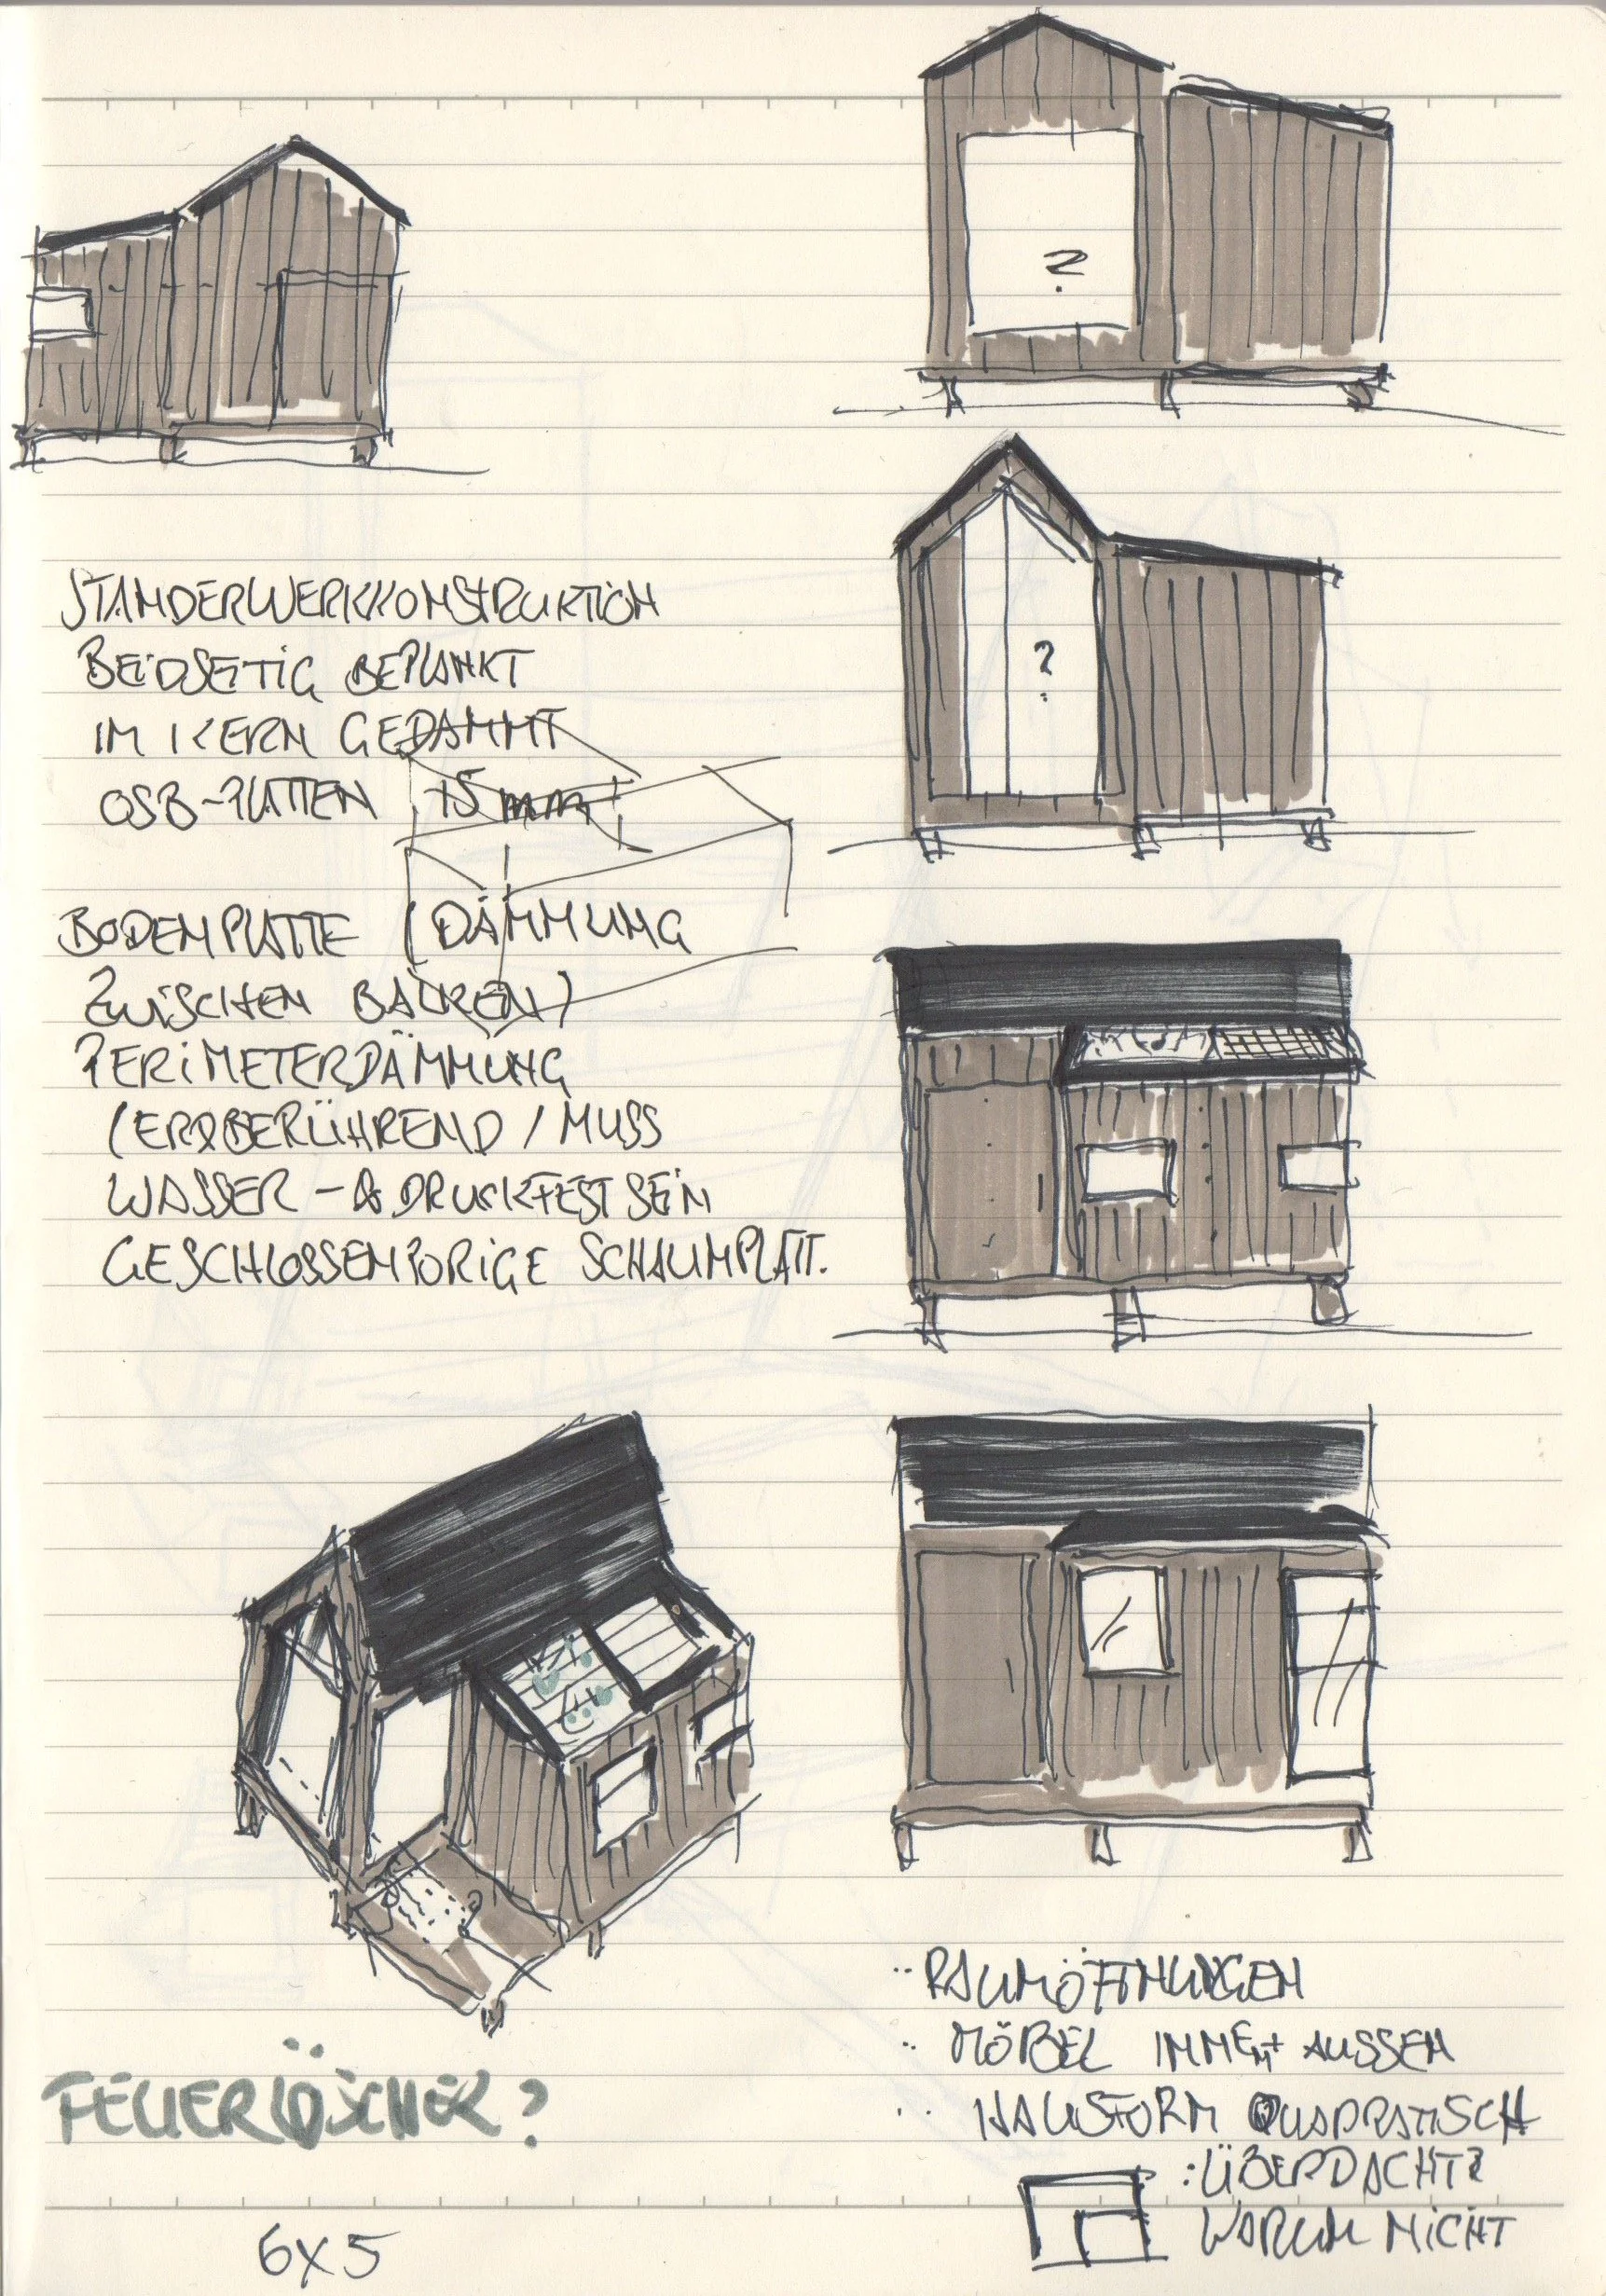 ?
?
STÄNDERWERKKONSTRUKTION
BEIDSEITIG BEPLANKT
IM KERN GEDÄMMT
OSB-PLATTEN 15 mm
BODENPLATTE (DÄMMUNG
ZWISCHEN BALKEN)
PERIMETERDÄMMUNG
(ERDBERÜHREND / MUSS
WASSER - & DRUCKFEST SEIN
GESCHLOSSENPORIGE SCHAUMPLATT.
FEUERLÖSCHER?
6x5
RAUMÖFFNUNGEN
MÖBEL INNEN + AUSSEN
HAUSFORM QUADRATISCH
: ÜBERDACHT?
WARUM NICHT